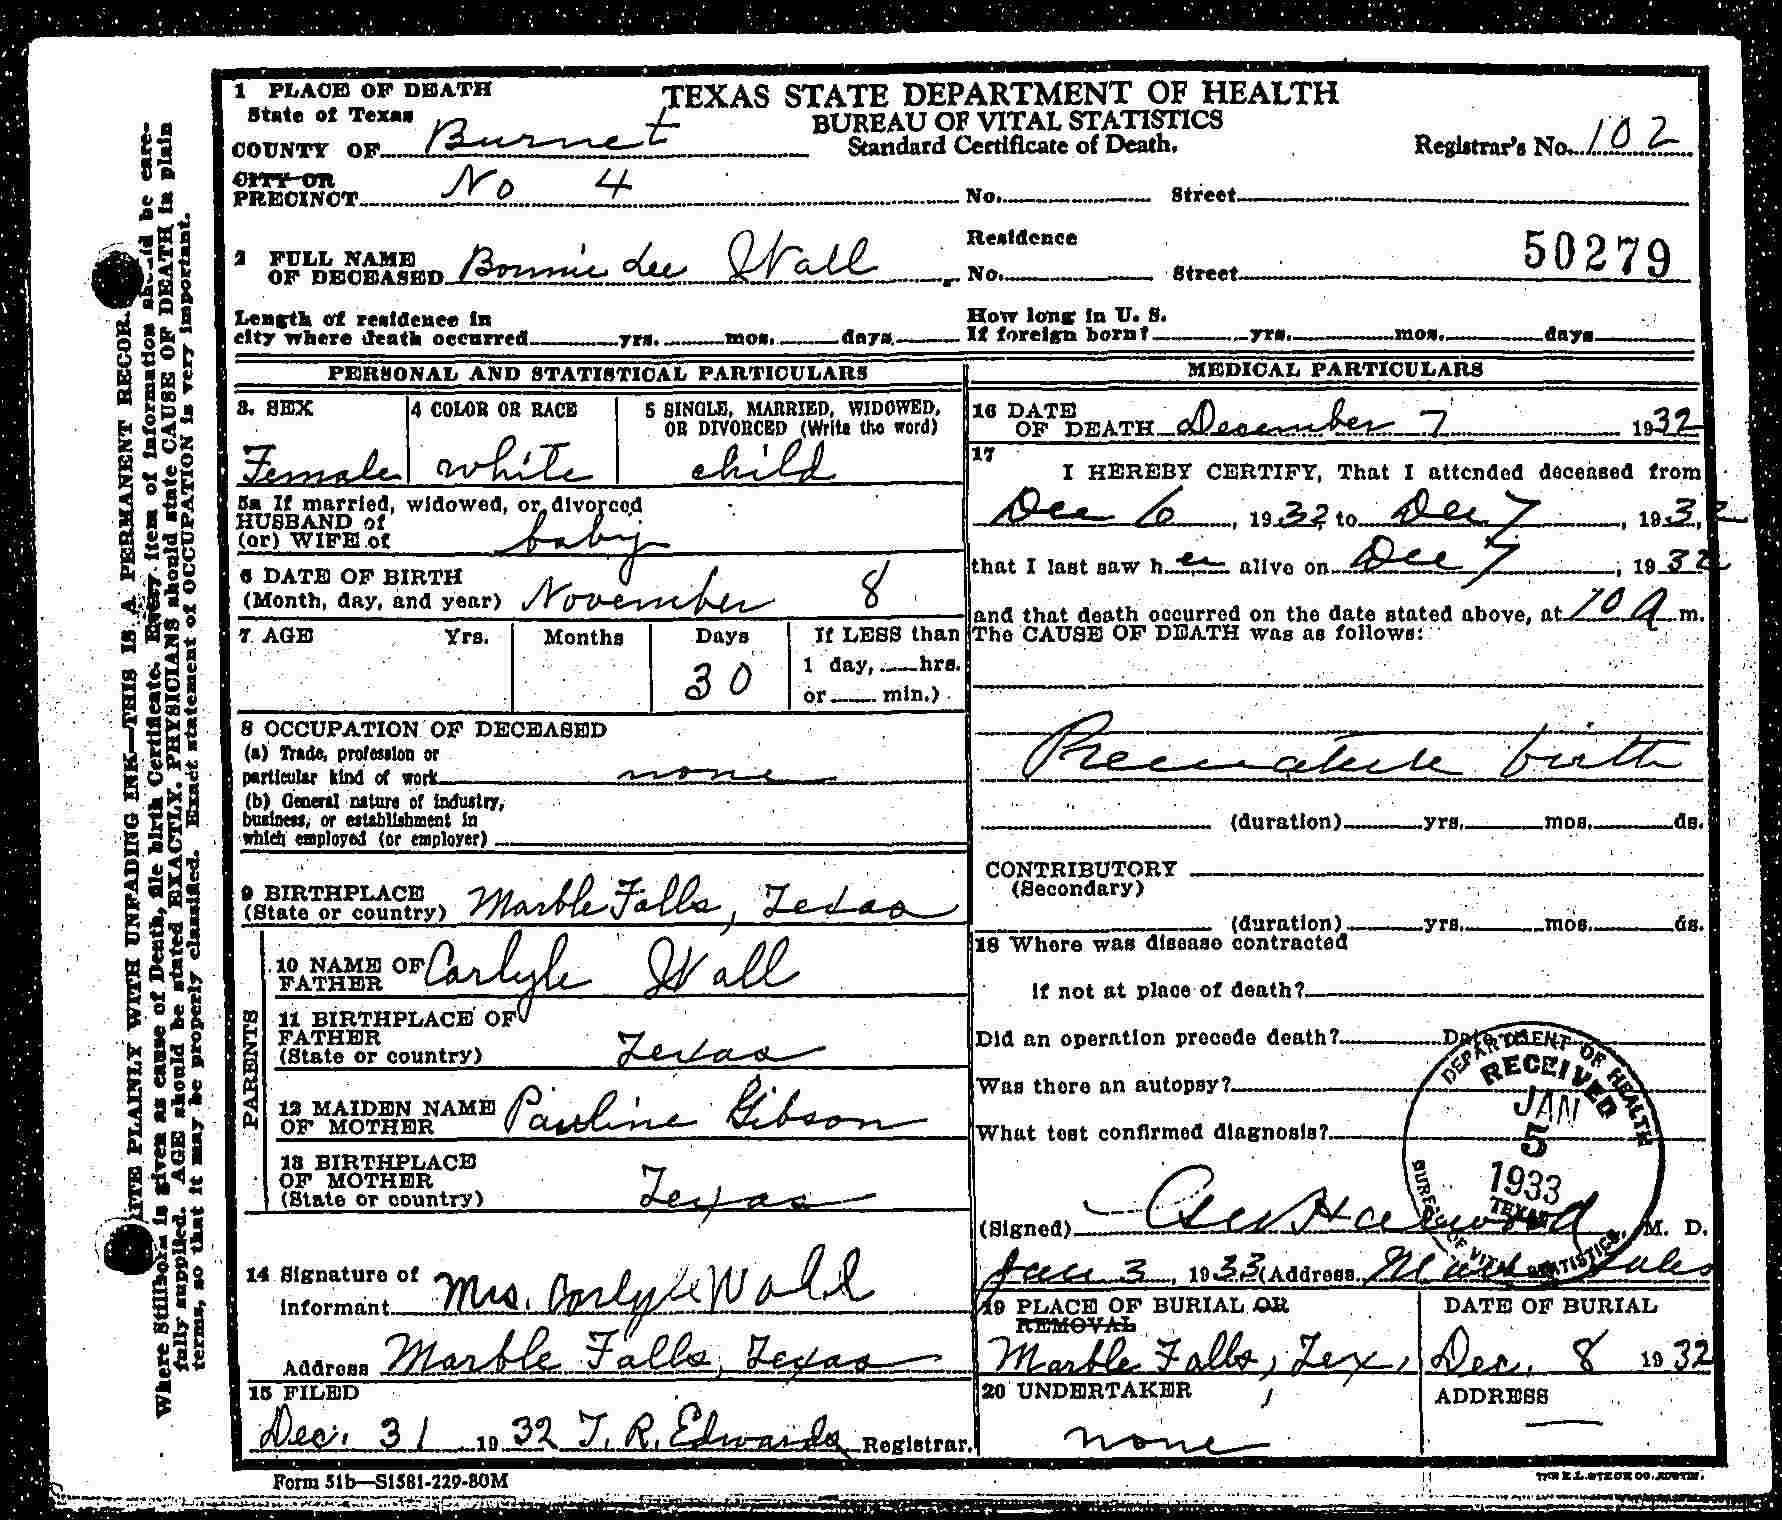 1 PLACE OF DEATH
TEXAS STATE DEPARTMENT OF HEALTH
State of Texas
BUREAU OF VITAL STATISTICS
COUNTY OF Burnet
Standard Certificate of Death.
Registrar's No. 102
CITY OR
PRECINCT No 4 No. Street
Residence
50279
2 FULL NAME
OF DECEASED Bonnie Lee Wall No. Street
Length of residence in
city where death occurred yrs. mos. days
How long in U. S.
If foreign born? yrs. mos. days
PERSONAL AND STATISTICAL PARTICULARS
3. SEX
Female
4 COLOR OR RACE
white
5 SINGLE, MARRIED, WIDOWED,
OR DIVORCED (Write the word)
child
5a If married, widowed, or divorced
HUSBAND of
(or) WIFE of baby
6 DATE OF BIRTH
(Month, day, and year) November 8
7 AGE Yrs. Months Days If LESS than
1 day, hrs.
30
or min.)
8 OCCUPATION OF DECEASED
(a) Trade, profession or
particular kind of work none
(b) General nature of industry,
business, or establishment in
which employed (or employer)
9 BIRTHPLACE
(State or country) Marble Falls, Texas
PARENTS
10 NAME OF
FATHER Carlyle Wall
11 BIRTHPLACE OF
FATHER
(State or country) Texas
12 MAIDEN NAME
OF MOTHER Pauline Gibson
13 BIRTHPLACE
OF MOTHER
(State or country) Texas
14 Signature of
Informant Mrs. Carlyle Wall
Address Marble Falls, Texas
15 FILED
Dec. 31 1932 T. R. Edwards Registrar.
MEDICAL PARTICULARS
16 DATE
OF DEATH Desember 7 1932
17
I HEREBY CERTIFY, That I attended deceased from
Dec 6, 1932 to Dec 7, 1932
that I last saw her alive on Dec 7, 1932
and that death occurred on the date stated above, at 10 A m.
The CAUSE OF DEATH was as follows:
Premature birth
(duration) yrs. mos. ds.
CONTRIBUTORY
(Secondary)
(duration) yrs. mos. ds.
18 Where was disease contracted
if not at place of death?
Did an operation precede death? Date of
Was there an autopsy?
What test confirmed diagnosis?
(Signed) Harwood M. D.
Jan 3, 1933 (Address Marble Falls
DEPARTMENT OF HEALTH
RECEIVED
JAN
5
1933
TEXAS
BUREAU OF VITAL STATISTICS
19 PLACE OF BURIAL OR
REMOVAL
Marble Falls, Tex,
DATE OF BURIAL
Dec. 8 1932
20 UNDERTAKER
none
ADDRESS
Form 51b—S1581-229-80M
THE E.L. STECK CO. AUSTIN.
WRITE PLAINLY WITH UNFADING INK—THIS IS A PERMANENT RECORD.
Where Stillborn is given as cause of Death, file birth Certificate. Every item of information should be care-
fully supplied. AGE should be stated EXACTLY. PHYSICIANS should state CAUSE OF DEATH in plain
terms, so that it may be properly classified. Exact statement of OCCUPATION is very important.